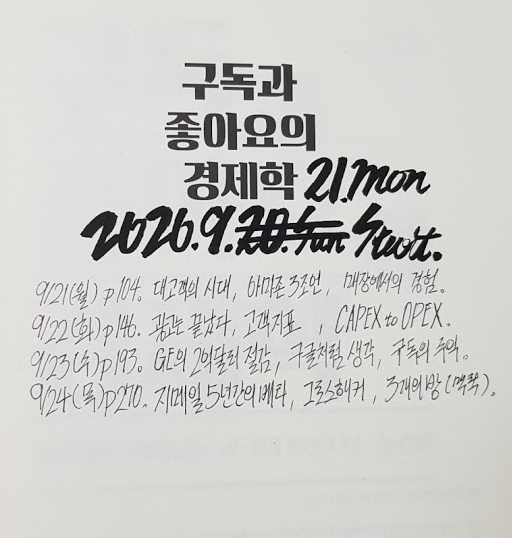 구독과
좋아요의
경제학 21.mon
2020.9.20.Sun Start.
9/21(월) p104. 대고객의 시대, 아마존 3조언, 매장에서의 경험.
9/22(화) p146. 광고는 끝났다, 고객지표, CAPEX to OPEX.
9/23(수) p193. GE의 2억달러 절감, 구글처럼 생각, 구독의 추억.
9/24(목) p270. 지메일 5년간의 베타, 그로스해커, 3개의 방(맥락).